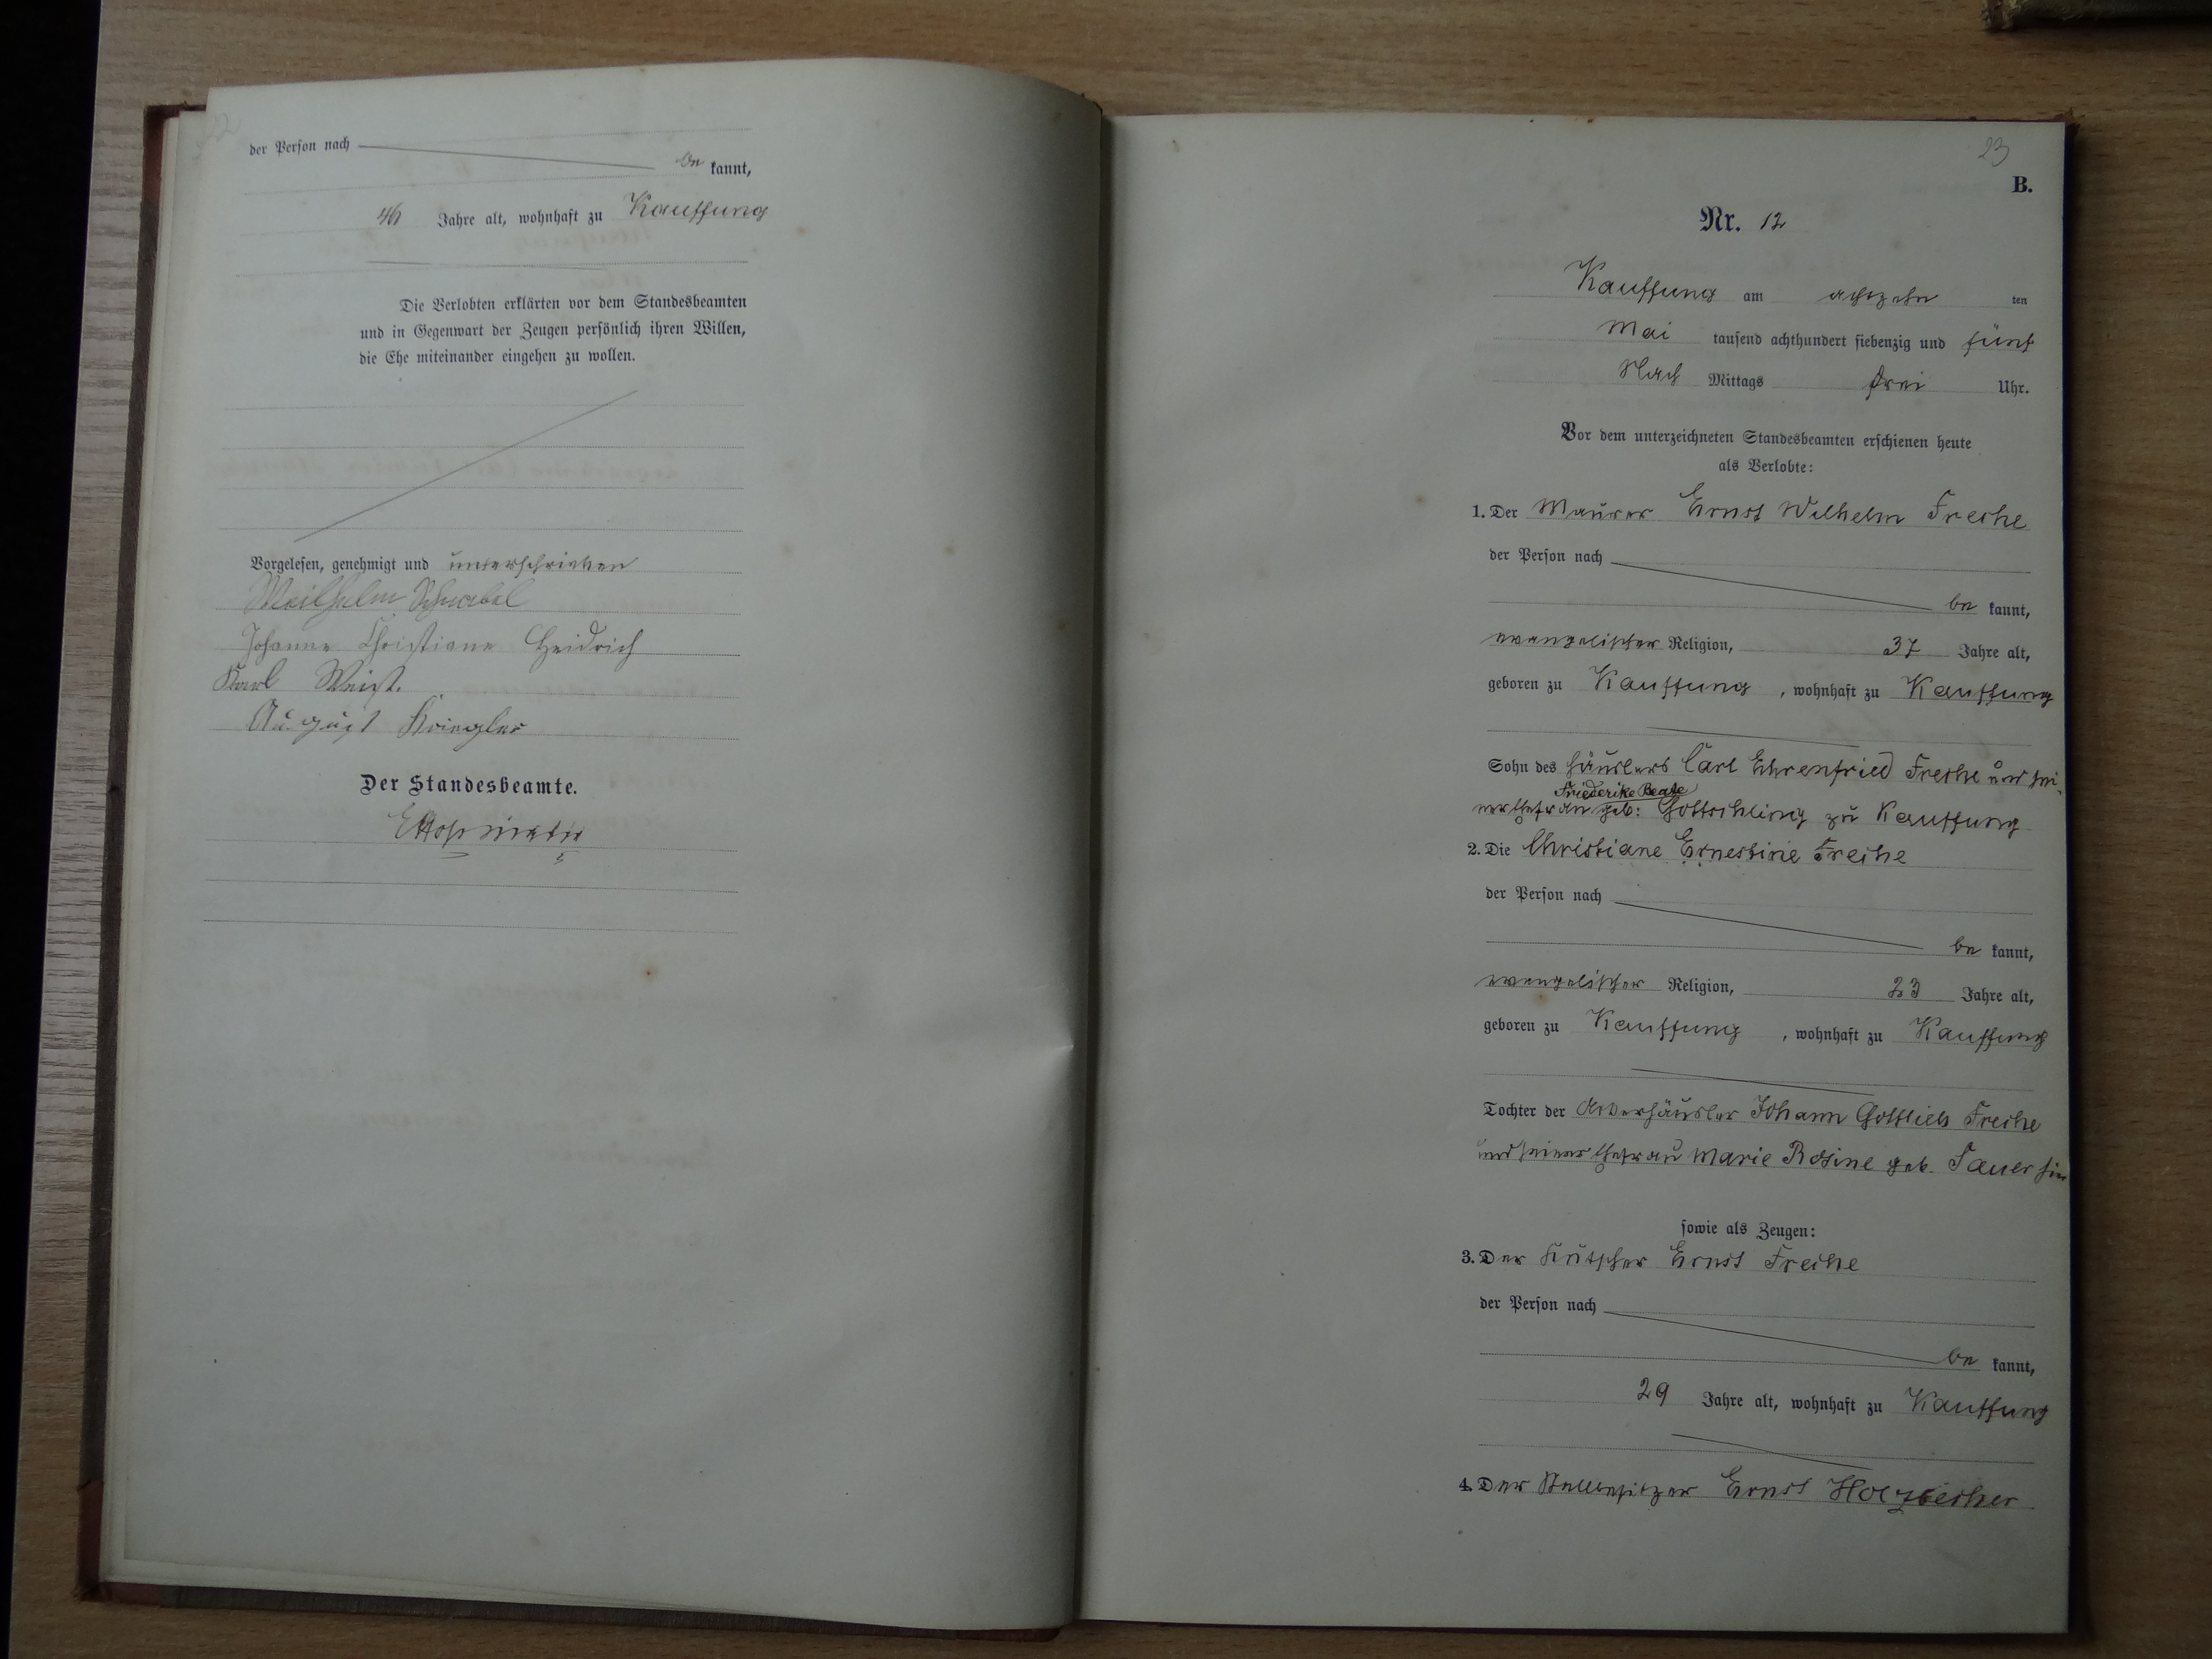 der Person nach
be kannt,
46 Jahre alt, wohnhaft zu Kauffung
Die Verlobten erklärten vor dem Standesbeamten
und in Gegenwart der Zeugen persönlich ihren Willen,
die Ehe miteinander eingehen zu wollen.
Vorgelesen, genehmigt und unterschrieben
Wilhelm
Johanne Christiane Heidrich
Karl Weist.
August Kriegler
Der Standesbeamte.
23
B.
Nr. 12
Kauffung am achtzehn ten
Mai tausend achthundert siebenzig und fünf
Nach Mittags drei Uhr.
Vor dem unterzeichneten Standesbeamten erschienen heute
als Verlobte:
1. Der Maurer Ernst Wilhelm Freche
der Person nach
be kannt,
evangelischer Religion, 37 Jahre alt,
geboren zu Kauffung, wohnhaft zu Kauffung
Sohn des Häuslers Carl Ehrenfried Freche und sei-
Friederike Beate
ner Ehefrau geb: Gottschling zu Kauffung
2. Die Christiane Ernestine Freche
der Person nach
be kannt,
evangelischer Religion, 23 Jahre alt,
geboren zu Kauffung, wohnhaft zu Kauffung
Tochter der Ackerhäusler Johann Gottlieb Freche
und seiner Ehefrau Marie Rosine geb. Sauer hier
sowie als Zeugen:
3. Der Kutscher Ernst Freche
der Person nach
be kannt,
29 Jahre alt, wohnhaft zu Kauffung
4. Der Stellbesitzer Ernst Holzbecher